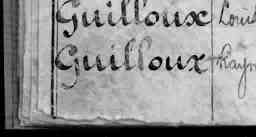 Guilloux Loui
Guilloux Raym